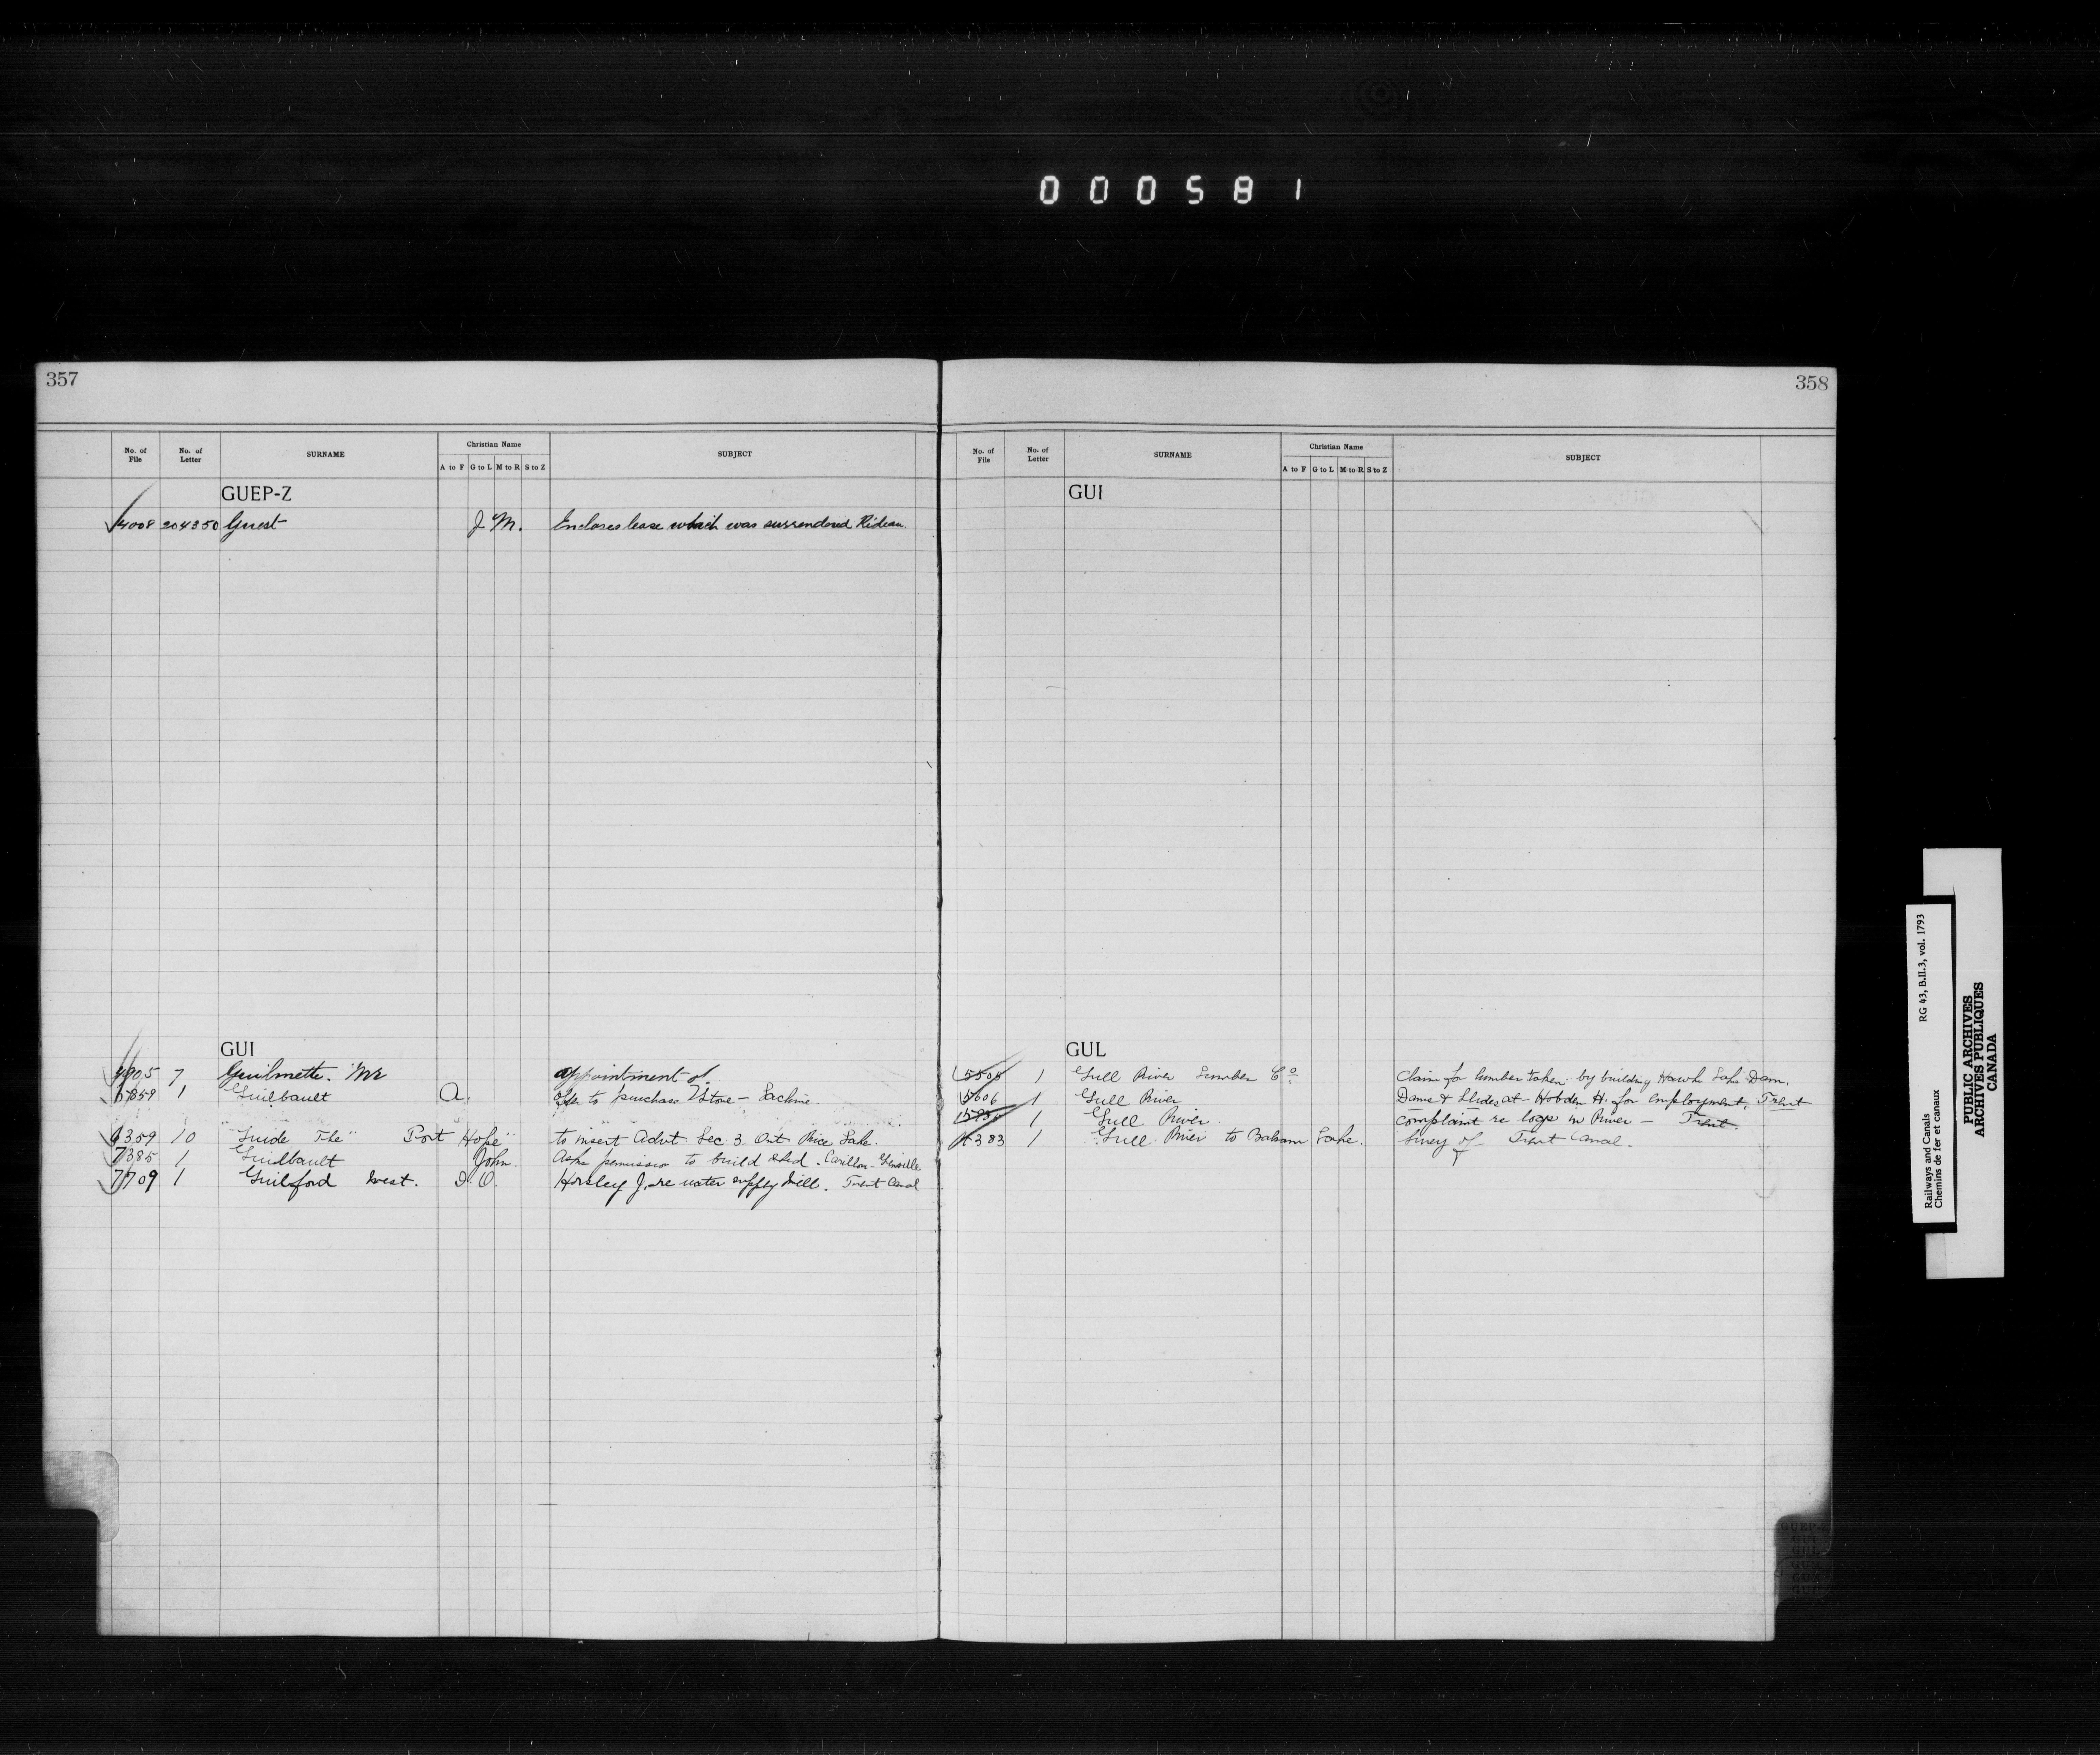 000581
357
No. of File No. of Letter SURNAME Christian Name A to F G to L M to R S to Z SUBJECT
GUEP-Z
4008 204350 Guest J. M. Encloses lease which was surrendered Rideau.
GUI
4905 7 Guilmette. Mr appointment of
1 Guilbault A. Offer to purchase Stone - Lachine
6359 10 "Guide The" Port Hope" to insert Advt. Sec. 3. Ont. Rice Lake.
7385 1 Guilbault John. Asks permission to build shed. Carillon-Grenville
7709 1 Guilford West. D. O. Horsley J. re water supply Mill. Trent Canal
358
No. of File No. of Letter SURNAME Christian Name A to F G to L M to R S to Z SUBJECT
GUI
GUL
5505 1 Gull River Lumber Co. Claim for lumber taken by building Hawk Lake Dam.
5606 1 Gull River Dams & Slides at Hobden H. for employment, Trent
1 Gull River. Complaint re logs in River - Trent.
1 Gull River to Balsam Lake. Survey of Trent Canal.
GUEP-Z
GUI
GUL
Railways and Canals RG 43, B.II.3, vol. 1793
Chemins de fer et canaux
PUBLIC ARCHIVES
ARCHIVES PUBLIQUES
CANADA